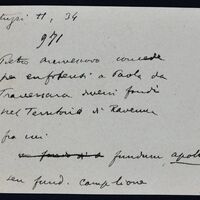 11, 34
971
Pietro arcivescovo concede
per enfiteusi a Paolo da
Traversara diversi fondi
nel Territorio di Ravenna
fra cui
fundum, apoli
seu fund. camplione